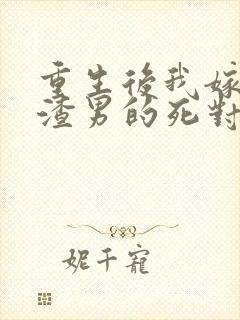 重生後我嫁
渣男的死對
妮千寵